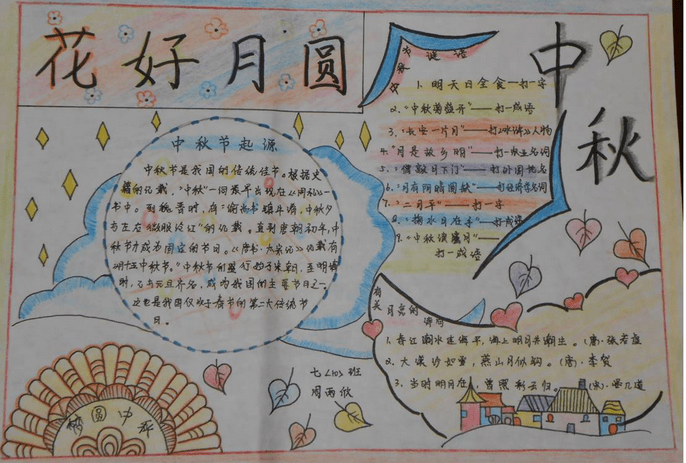 花好月圆
中秋
中秋节起源
中秋节是我国的传统佳节。根据史
籍的记载,"中秋"一词最早出现在《周礼》一
书中。到魏晋时,有"谕尚书镇牛渚,中秋夕
与左右微服泛江"的记载。直到唐朝初年,中
秋节才成为固定的节日。《唐书·太宗记》记载有
"八月十五中秋节。"中秋节的盛行始于宋朝,至明清
时,已与元旦齐名,成为我国的主要节日之一
这也是我国仅次于春节的第二大传统节
日。
谜语
1.明天日全食—打一字
2."中秋菊盛开"——打一成语
3."长安一片月"——打《水浒》人物
4."月是故乡明"—打一
5."僧敲月下门"——打外国地名
6."月有阴晴圆缺"——打经济学名词
7."二月平"——打一字
8."掬水月在手"——打成语
9."中秋演蜜月"——
打一成语
有关月亮的诗句
1.春江潮水连海平,海上明月共潮生。(唐)张若虚
2.大漠沙如雪,燕山月似钩。(唐)李贺
3.当时明月在,曾照彩云归。(宋)晏几道
七(10)班
周雨欣
圆中秋